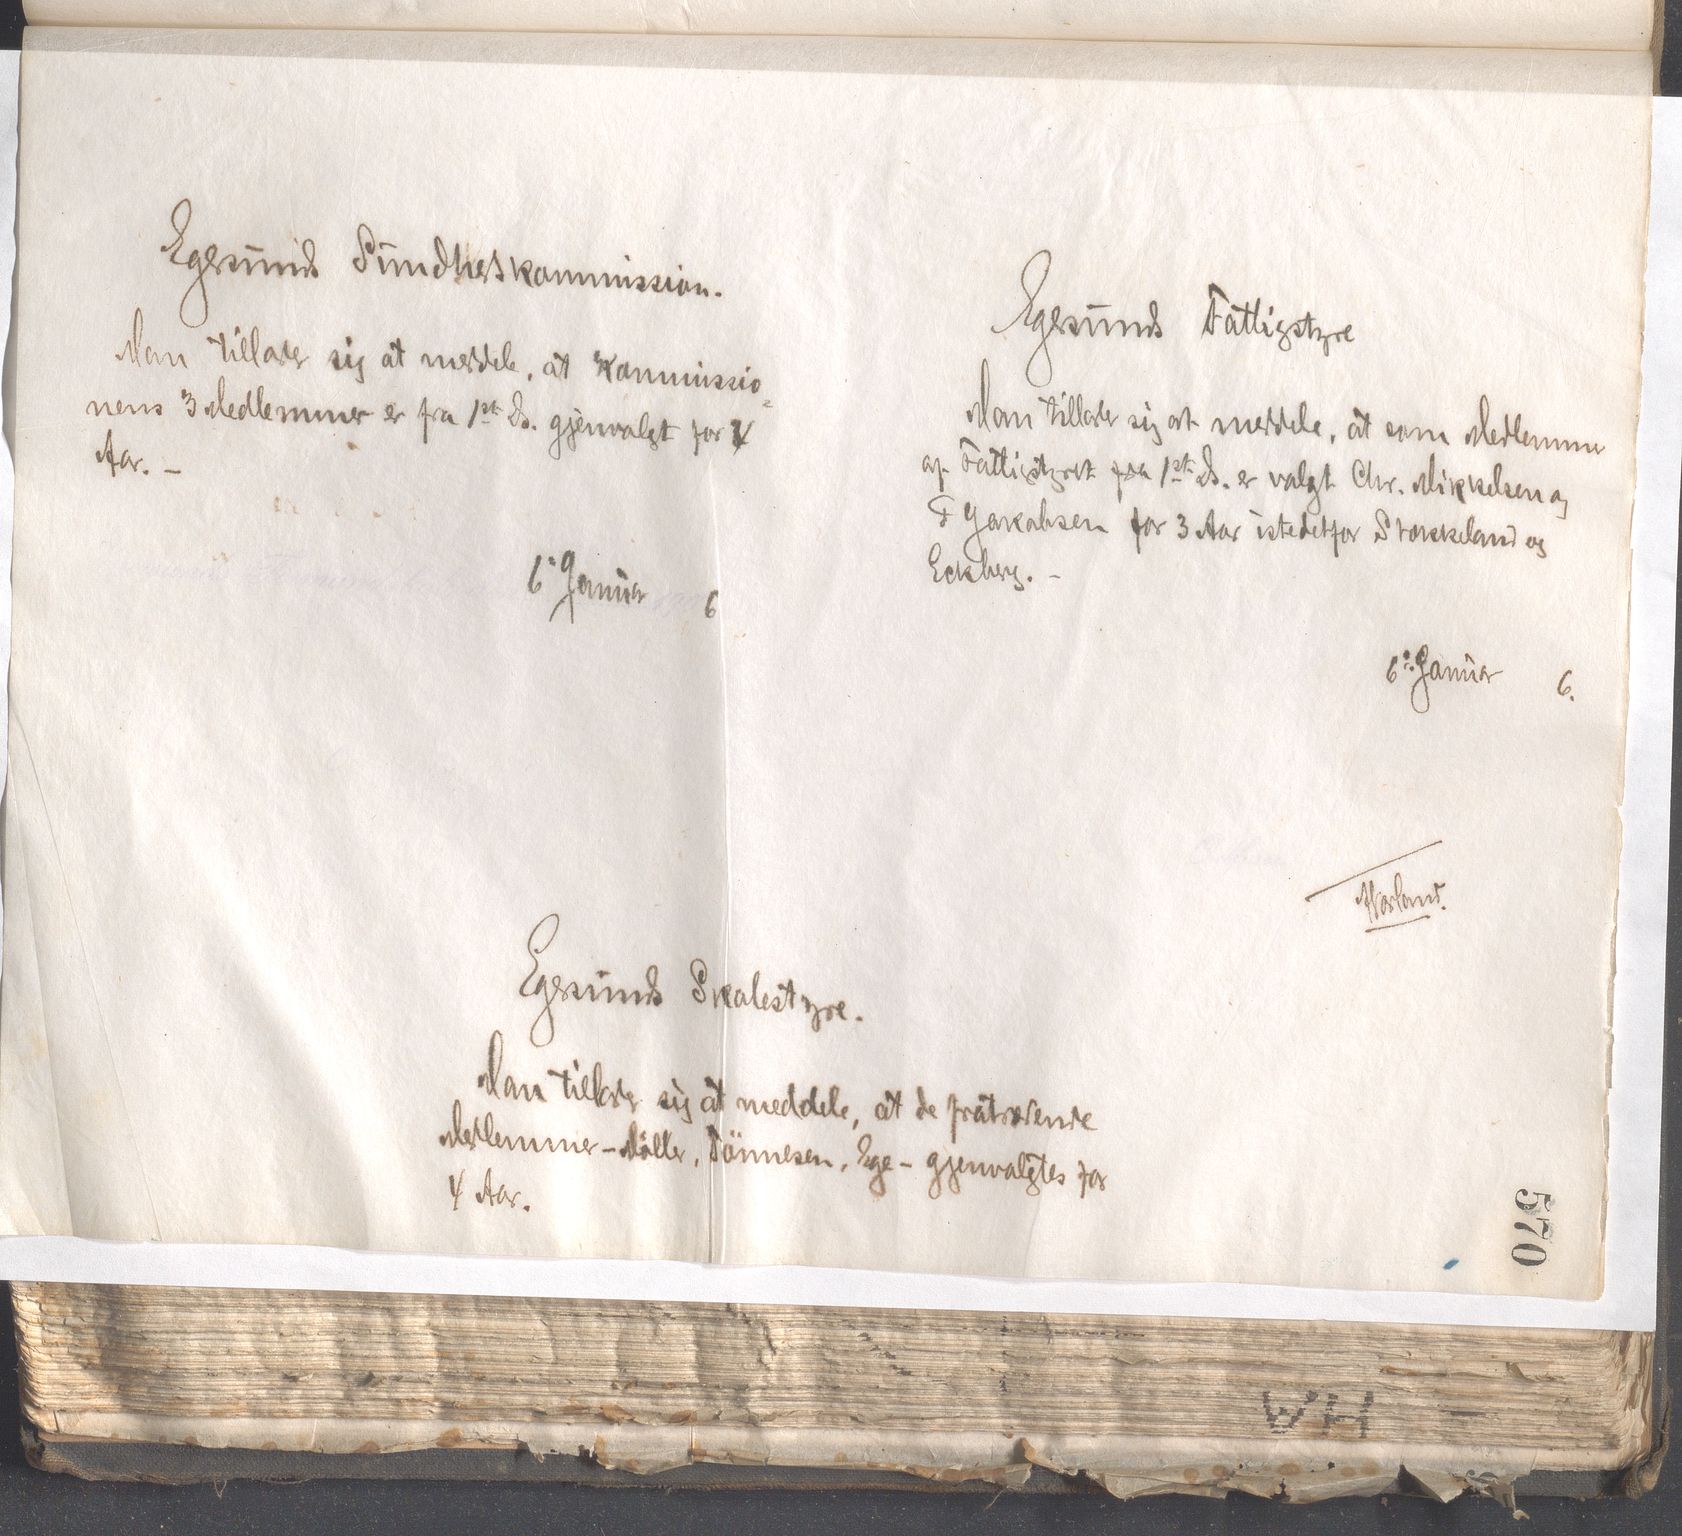 Egersunds Sundhedskommission.
Man tillader sig at meddele, at Kommissio=
nens 3 Medlemmer er fra 1ste ds. gjenvalgt for 4
Aar. –
6' Januar 6
Egersunds Fattigstyre
Man tillader sig at meddele, at som Medlemmer
af Fattigstyret fra 1ste ds. er valgt Chr. Mikkelsen og
F Jakobsen for 3 Aar istedetfor Stokkeland og
Eckberg. –
6' Januar 6.
Egersunds Skolestyre.
Man tillader sig at meddele, at de fratrædende
Medlemmer – Møller, Tönnesen, Ege – gjenvalgtes for
4 Aar.
570